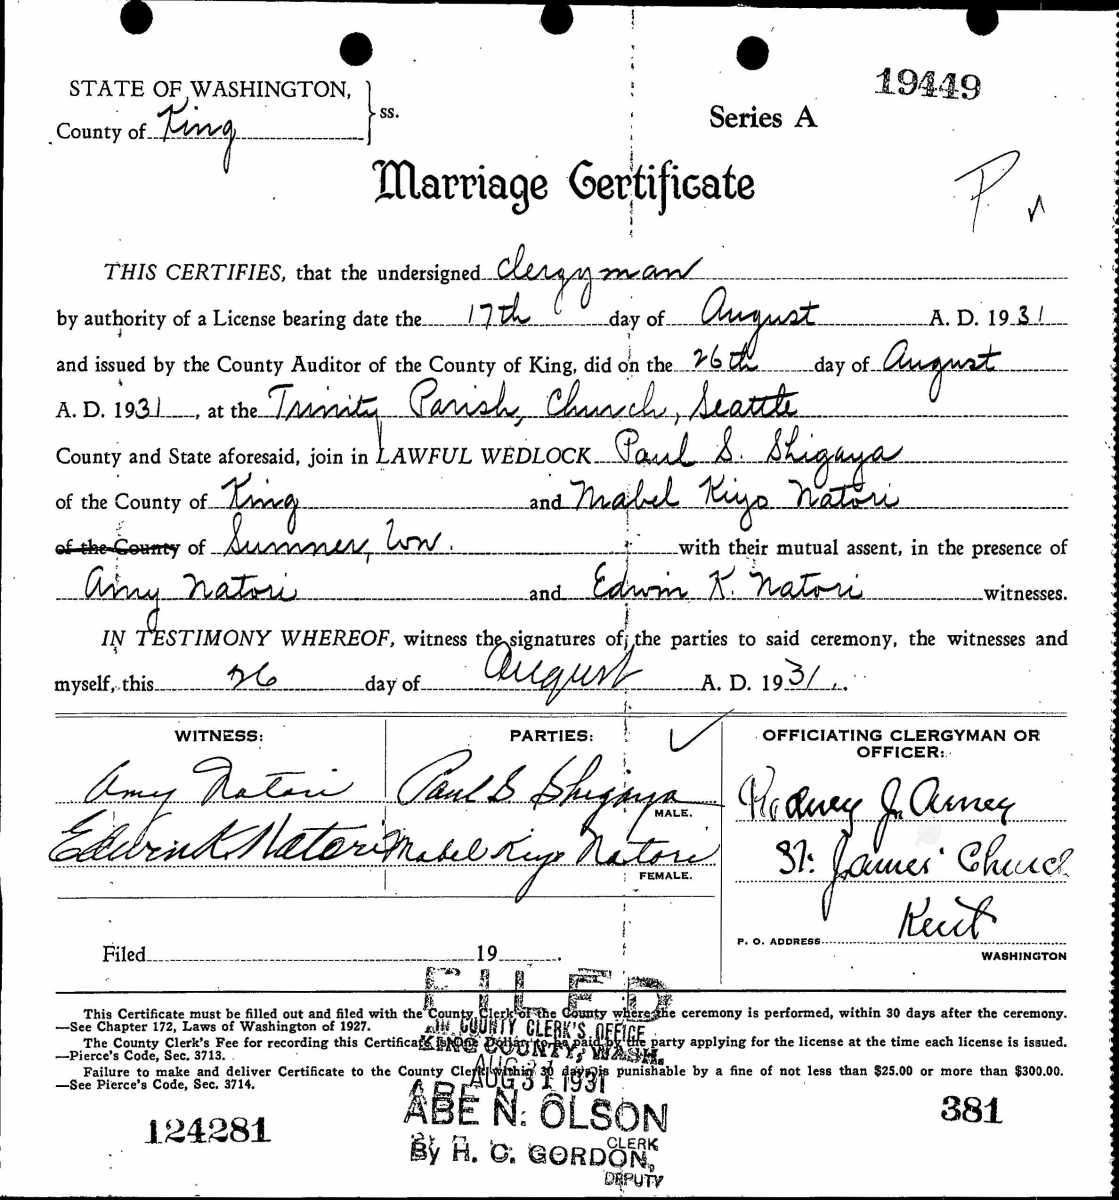 STATE OF WASHINGTON, } ss.
19449
County of King
Series A
Marriage Certificate
P
THIS CERTIFIES, that the undersigned Clergyman
by authority of a License bearing date the 17th day of August A. D. 1931
and issued by the County Auditor of the County of King, did on the 26th day of August
A. D. 1931, at the Trinity Parish, Church, Seattle
County and State aforesaid, join in LAWFUL WEDLOCK Paul S. Shigaya
of the County of King and Mabel Kiyo Natori
of the County of Sumner, Wn. with their mutual assent, in the presence of
Amy Natori and Edwin K. Natori witnesses.
IN TESTIMONY WHEREOF, witness the signatures of the parties to said ceremony, the witnesses and
myself, this 26 day of August A. D. 1931.
WITNESS:
Amy Natori
Edwin K. Natori
PARTIES:
Paul S Shigaya
MALE.
Mabel Kiyo Natori
FEMALE.
OFFICIATING CLERGYMAN OR
OFFICER:
Rodney J. Arney
St. James' Church
Kent
P. O. ADDRESS
WASHINGTON
Filed 19 .
FILED
IN COUNTY CLERK'S OFFICE
KING COUNTY, WASH.
AUG 31 1931
ABE N. OLSON
CLERK
By H. C. GORDON,
DEPUTY
This Certificate must be filled out and filed with the County Clerk of the County where the ceremony is performed, within 30 days after the ceremony.
—See Chapter 172, Laws of Washington of 1927.
The County Clerk's Fee for recording this Certificate is One Dollar to be paid by the party applying for the license at the time each license is issued.
—Pierce's Code, Sec. 3713.
Failure to make and deliver Certificate to the County Clerk within 30 days is punishable by a fine of not less than $25.00 or more than $300.00.
—See Pierce's Code, Sec. 3714.
124281
381